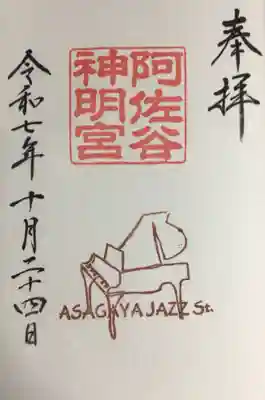 奉拝
阿佐谷
神明宮
令和七年十月二十四日
ASAGAYA JAZZ St.